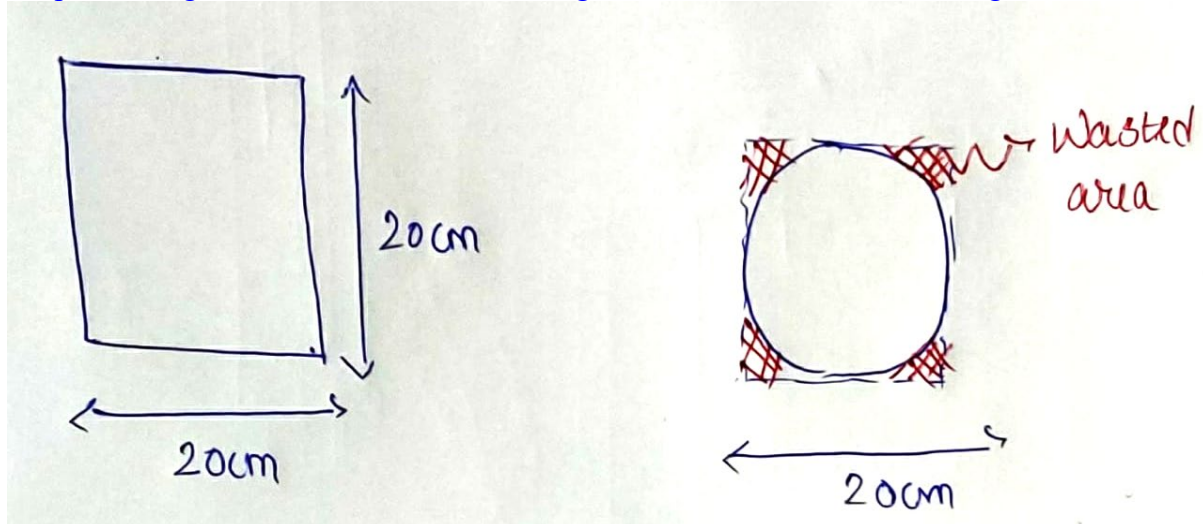 20cm
20cm
Wasted
area
20cm